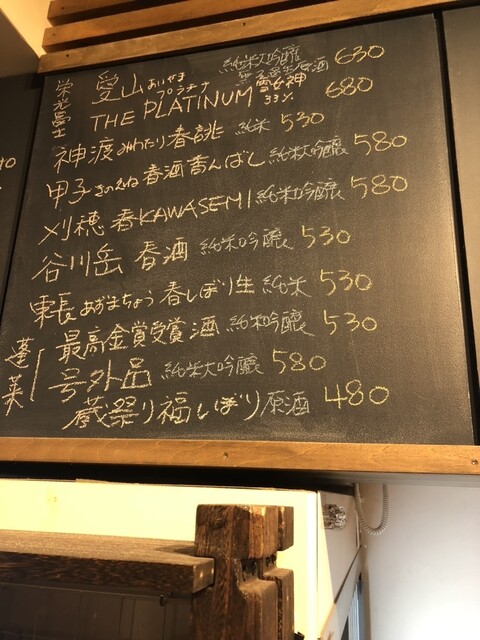 栄光冨士
愛山 あいやま プラチナ 純米大吟醸 無濾過生原酒 630
THE PLATINUM 雪女神 33% 680
神渡 みわたり 春誂 純米 530
甲子 きのえね 春酒香んばし 純米大吟醸 580
刈穂 春KAWASEMI 純米吟醸 580
谷川岳 春酒 純米吟醸 530
東長 あずまちょう 春しぼり生 純米 530
蓬莱
最高金賞受賞酒 純米吟醸 530
号外品 純米大吟醸 580
蔵祭り福しぼり 原酒 480